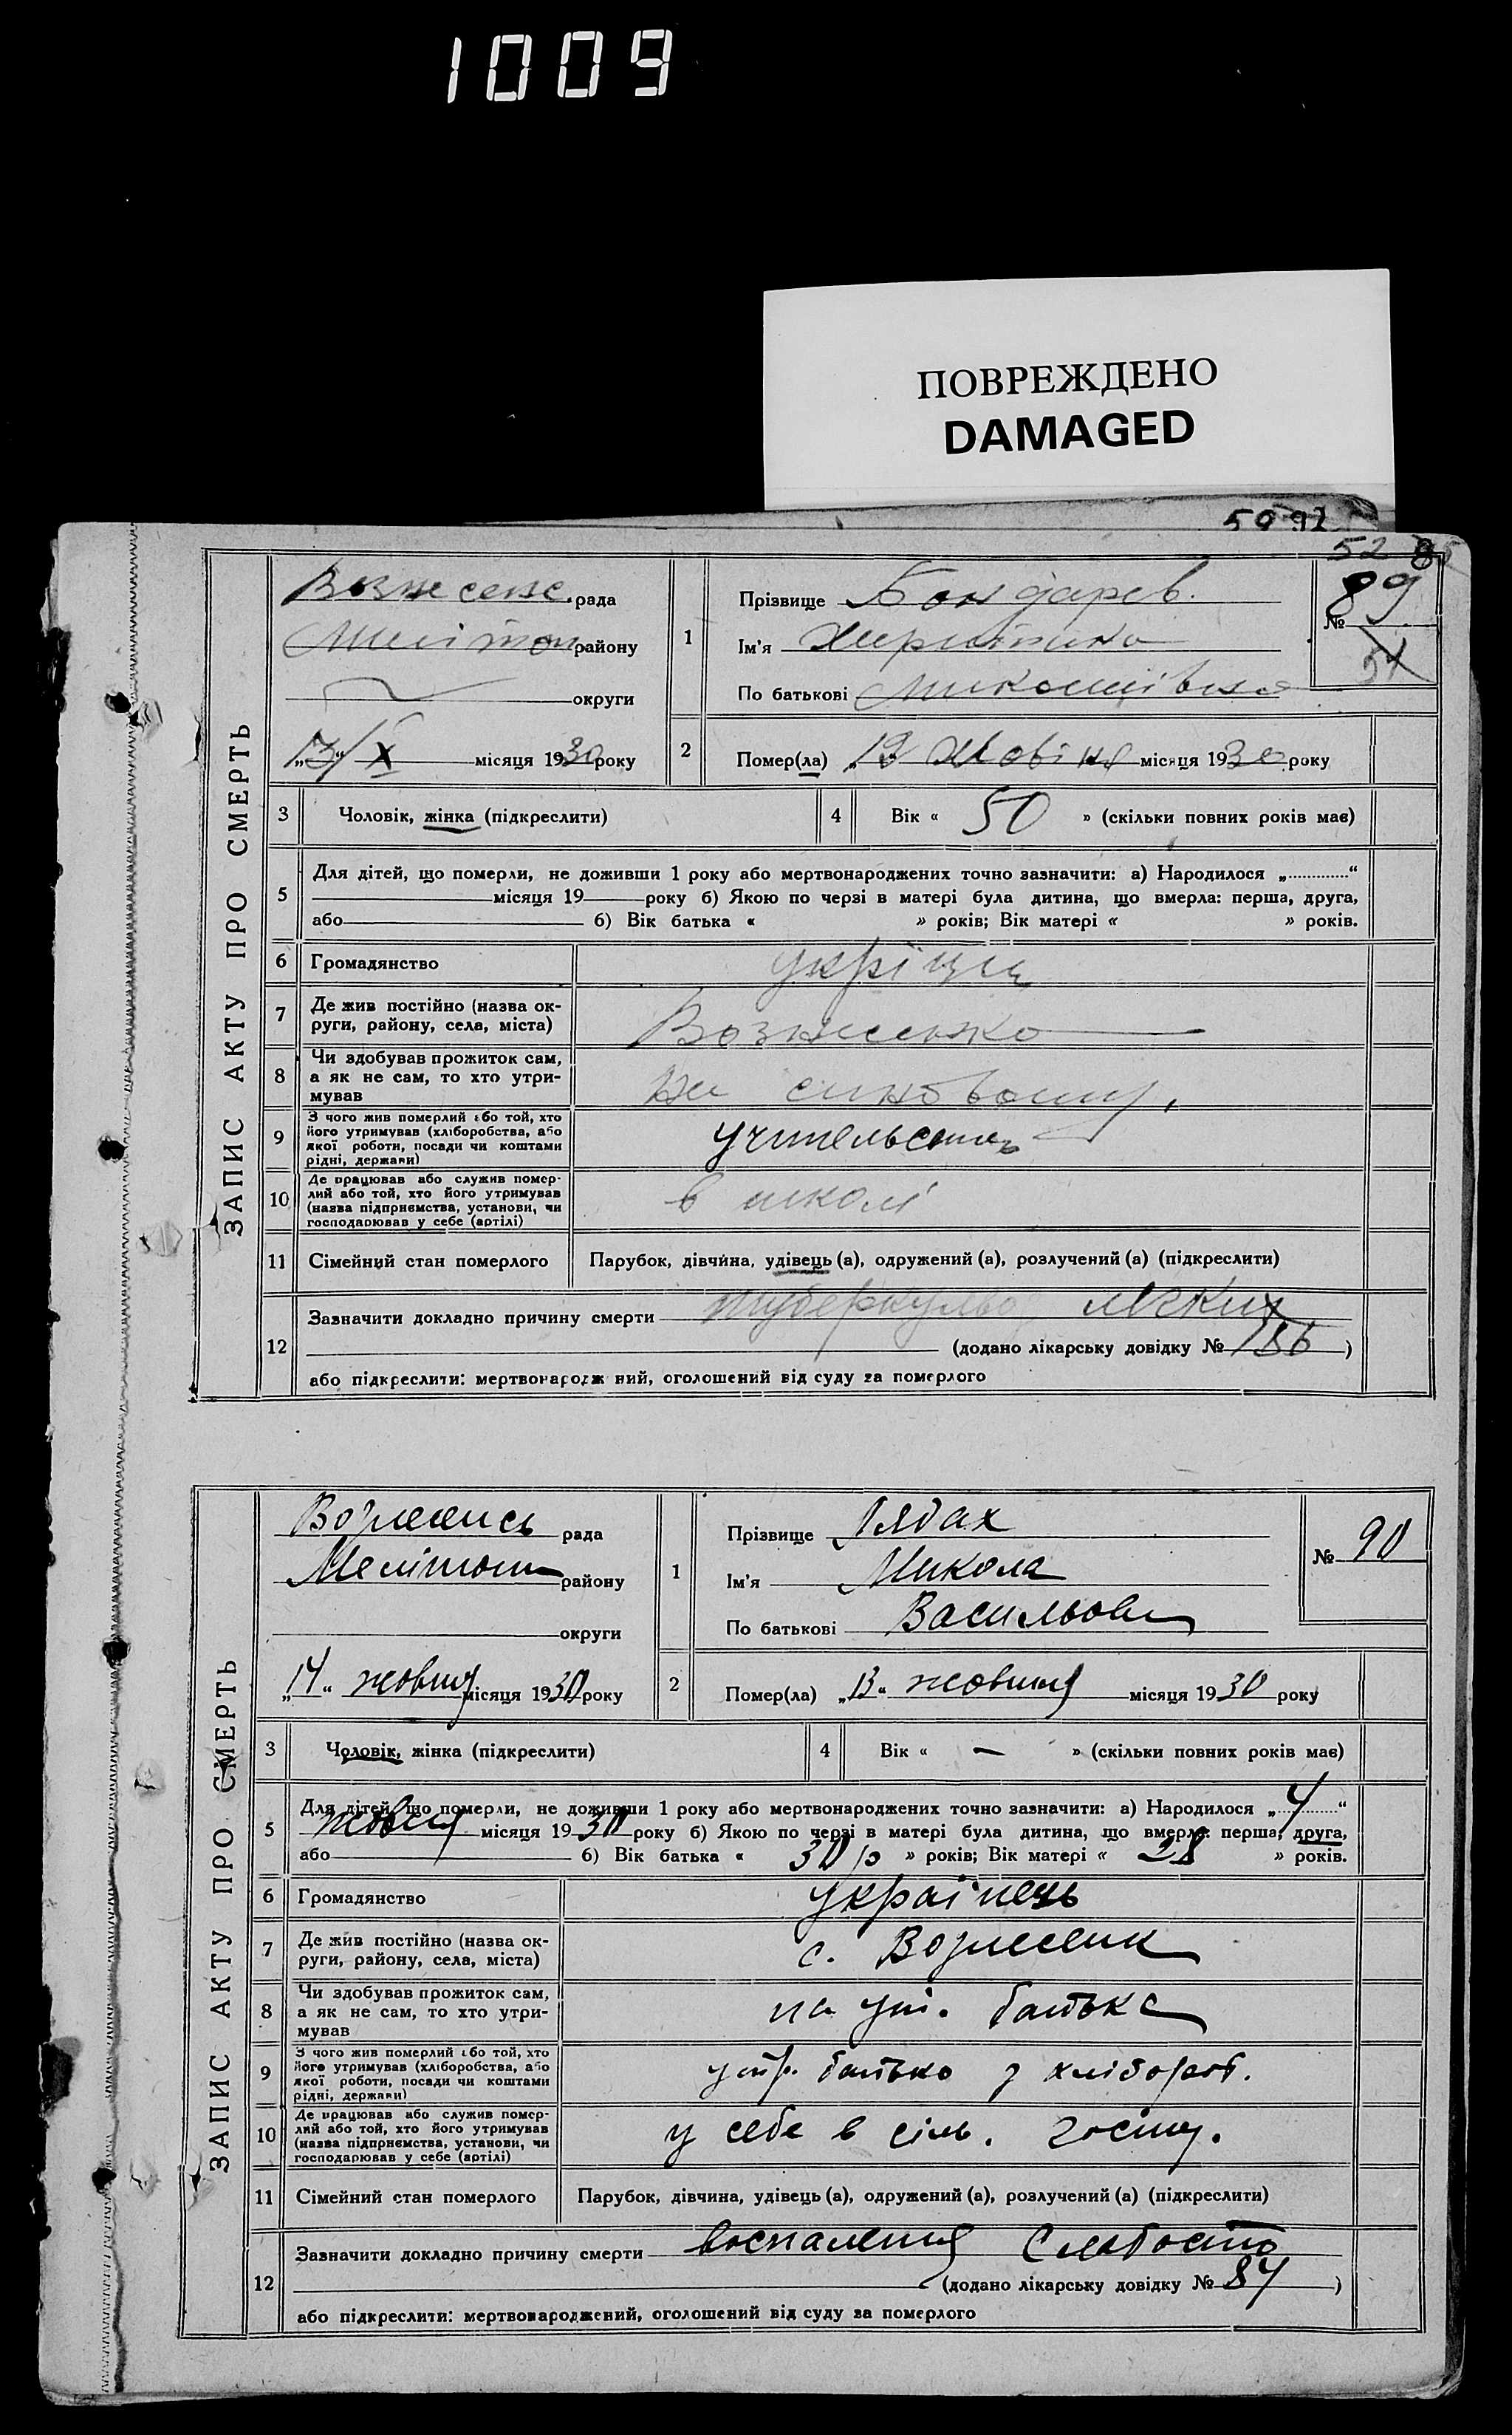 1009
ПОВРЕЖДЕНО
DAMAGED
52
ЗАПИС АКТУ ПРО СМЕРТЬ
рада
району
округи
X місяця 1930 року
1
Прізвище Бондарев.
Ім'я
По батькові
№ 89
2
Помер(ла) місяця 1930 року
3 Чоловік, жінка (підкреслити)
4 Вік « 50 » (скільки повних років має)
5
Для дітей, що померли, не доживши 1 року або мертвонароджених точно зазначити: а) Народилося „ “
місяця 19 року б) Якою по черзі в матері була дитина, що вмерла: перша, друга,
або б) Вік батька « » років; Вік матері « » років.
6 Громадянство
7 Де жив постійно (назва ок-
руги, району, села, міста)
8 Чи здобував прожиток сам,
а як не сам, то хто утри-
мував
9 З чого жив померлий або той, хто
його утримував (хліборобства, або
якої роботи, посади чи коштами
рідні, держави)
10 Де працював або служив помер-
лий або той, хто його утримував
(назва підприємства, установи, чи
господарював у себе (артілі)
в школі
11 Сімейний стан померлого Парубок, дівчина, удівець (а), одружений (а), розлучений (а) (підкреслити)
12
Зазначити докладно причину смерти туберкульоз легких
(додано лікарську довідку № 186)
або підкреслити: мертвонароджений, оголошений від суду за померлого
ЗАПИС АКТУ ПРО СМЕРТЬ
рада
району
округи
„14“ жовтня місяця 1930 року
1
Прізвище
Ім'я Микола
По батькові
№ 90
2
Помер(ла) „13“ жовтня місяця 1930 року
3 Чоловік, жінка (підкреслити)
4 Вік « — » (скільки повних років має)
5
Для дітей, що померли, не доживши 1 року або мертвонароджених точно зазначити: а) Народилося „4“
жовтня місяця 1930 року б) Якою по черзі в матері була дитина, що вмерла: перша, друга,
або б) Вік батька « 30 р » років; Вік матері « 28 » років.
6 Громадянство українець
7 Де жив постійно (назва ок-
руги, району, села, міста)
с.
8 Чи здобував прожиток сам,
а як не сам, то хто утри-
мував
на ут. батька
9 З чого жив померлий або той, хто
його утримував (хліборобства, або
якої роботи, посади чи коштами
рідні, держави)
утр. батько з хлібороб.
10 Де працював або служив помер-
лий або той, хто його утримував
(назва підприємства, установи, чи
господарював у себе (артілі)
у себе в сіль. госпу.
11 Сімейний стан померлого Парубок, дівчина, удівець (а), одружений (а), розлучений (а) (підкреслити)
12
Зазначити докладно причину смерти
(додано лікарську довідку № 84)
або підкреслити: мертвонароджений, оголошений від суду за померлого